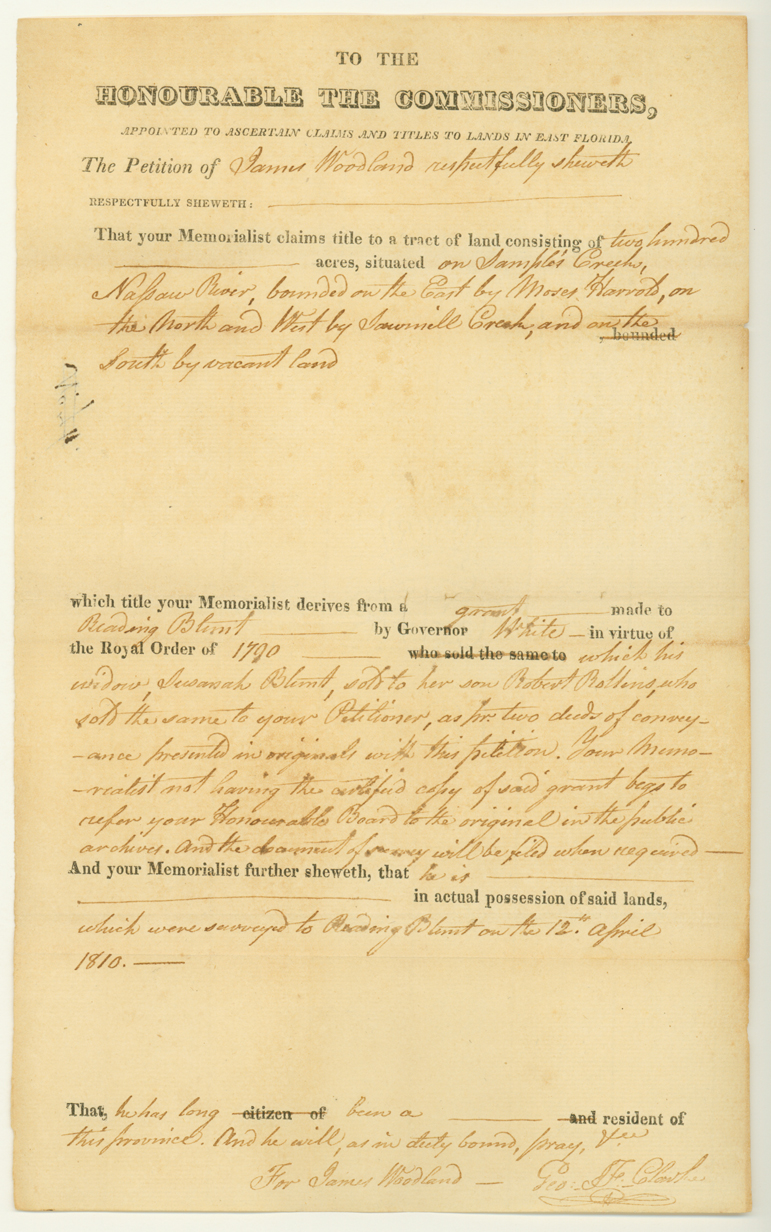 TO THE
HONOURABLE THE COMMISSIONERS,
APPOINTED TO ASCERTAIN CLAIMS AND TITLES TO LANDS IN EAST FLORIDA.
The Petition of James Woodland respectfully sheweth
RESPECTFULLY SHEWETH:
That your Memorialist claims title to a tract of land consisting of two hundred
acres, situated on Sample's Creek,
Nassau River, bounded on the East by Moses Harrold, on
the North and West by Sawmill Creek, and on the
, bounded
South by vacant land
which title your Memorialist derives from a grant made to
Reading Blunt by Governor White – in virtue of
the Royal Order of 1790 who sold the same to which his
widow, Susanah Blunt, sold to her son Robert Rollins, who
sold the same to your Petitioner, as pr. two deeds of convey-
-ance presented in originals with this petition. Your Memo-
-rialist not having the certified copy of said grant begs to
refer your Honourable Board to the original in the public
archives. And the document of survey will be filed when required —
And your Memorialist further sheweth, that he is
in actual possession of said lands,
which were surveyed to Reading Blunt on the 12.th April
1810. —
That, he has long citizen of been a and resident of
this province. And he will, as in duty bound, pray, &ca
For James Woodland — Geo: J. F. Clarke